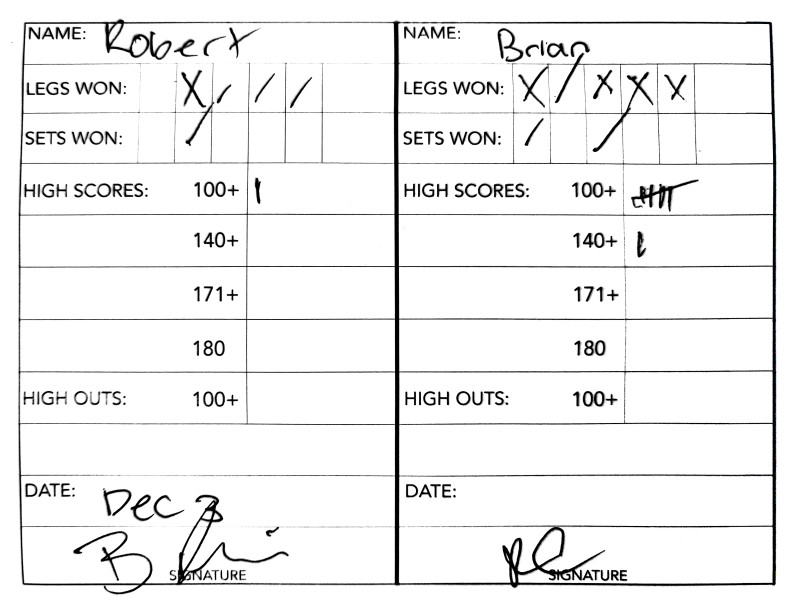 NAME: Robert
LEGS WON: X / / /
SETS WON: /
HIGH SCORES: 100+ |
140+
171+
180
HIGH OUTS: 100+
DATE: Dec 3
SIGNATURE
NAME: Brian
LEGS WON: X / X X X
SETS WON: / /
HIGH SCORES: 100+
140+ |
171+
180
HIGH OUTS: 100+
DATE:
SIGNATURE